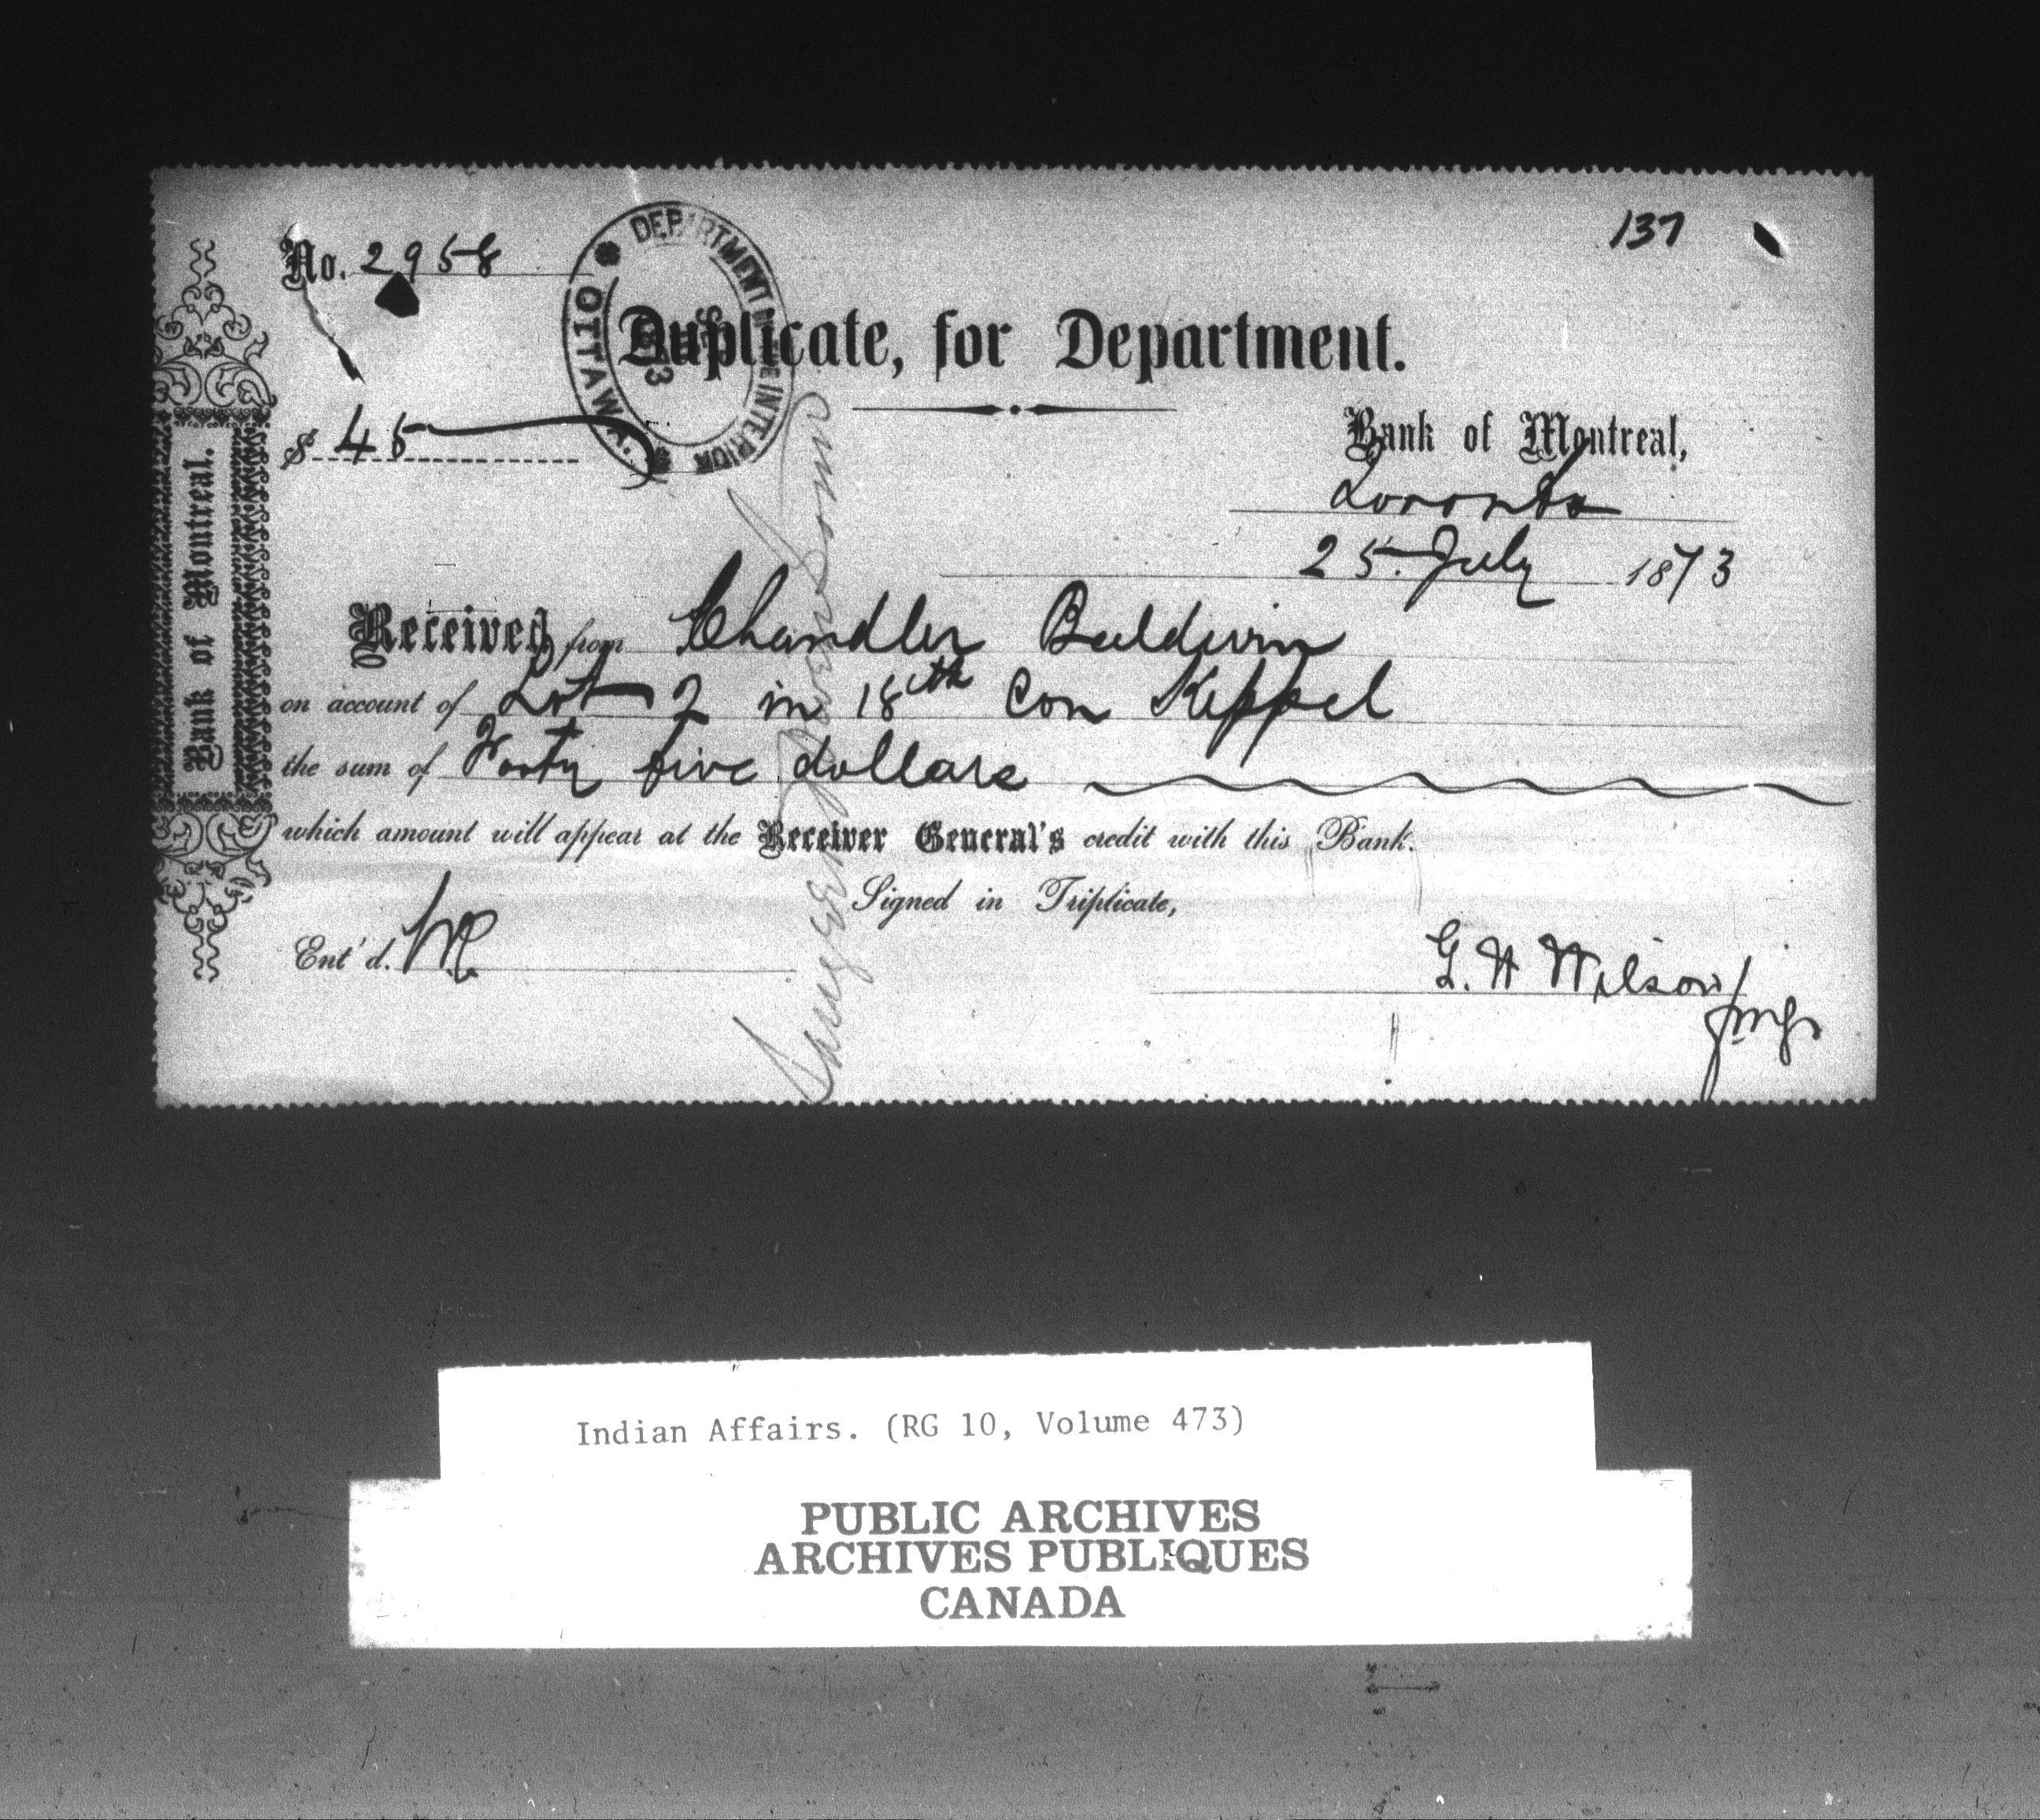 137
No. 2958
DEPARTMENT OF THE INTERIOR
OTTAWA.
Duplicate, for Department.
$ 45
Bank of Montreal,
Toronto
25 July 1873
Received from Chandler Baldwin
on account of Lot 2 in 18th Con Keppel
the sum of Forty five dollars
which amount will appear at the Receiver General's credit with this Bank.
Signed in Triplicate,
Ent'd.
G. H Wilson
Bank of Montreal.
Indian Affairs. (RG 10, Volume 473)
PUBLIC ARCHIVES
ARCHIVES PUBLIQUES
CANADA